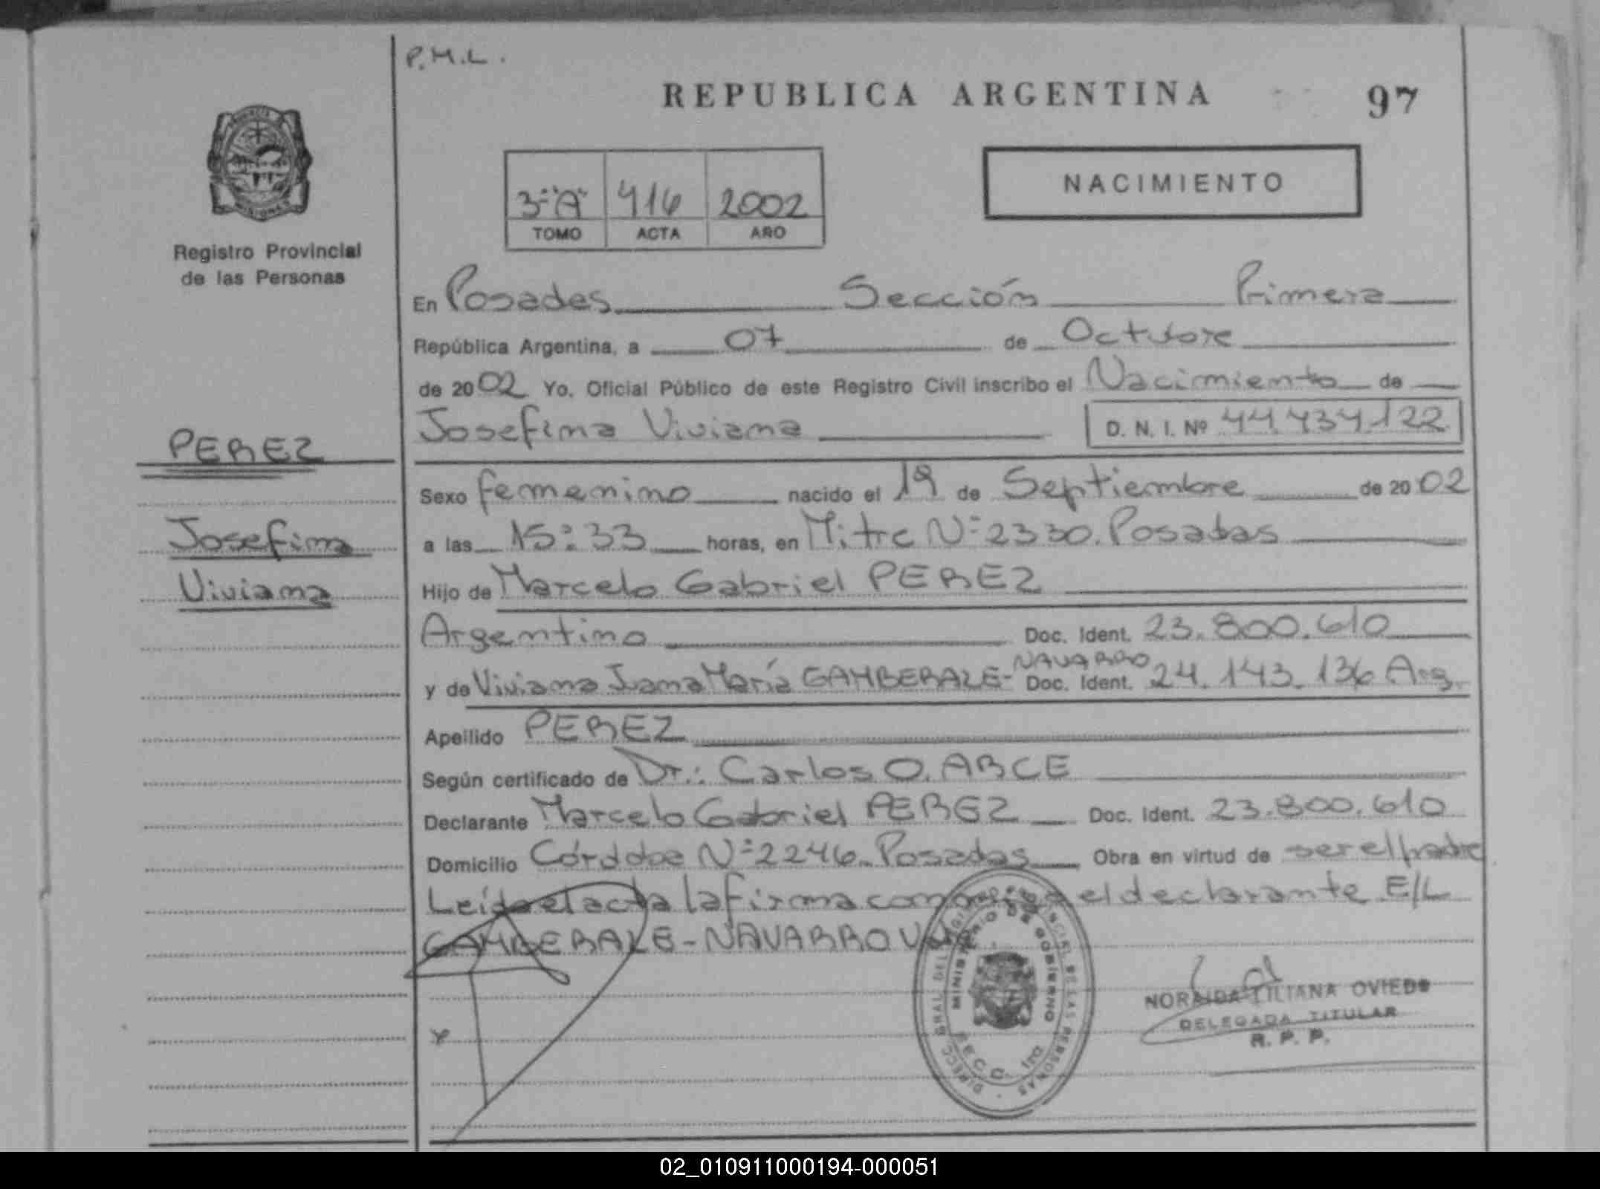 P.M.L.
REPUBLICA ARGENTINA
97
Registro Provincial
de las Personas
3-"A" 416 2002
TOMO ACTA AÑO
NACIMIENTO
En Posadas Sección Primera
República Argentina, a 07 de Octubre
de 2002 Yo, Oficial Público de este Registro Civil inscribo el Nacimiento de
Josefina Viviana D. N. I. Nº 44.434.122
PEREZ
Josefina
Viviana
Sexo femenino nacido el 19 de Septiembre de 2002
a las 15:33 horas, en Mitre Nº 2330. Posadas
Hijo de Marcelo Gabriel PEREZ
Argentino Doc. Ident. 23.800.610
y de Viviana Juana María GAMBERALE- NAVARRO Doc. Ident. 24.143.136 Arg.
Apellido PEREZ
Según certificado de Dr.: Carlos O. ARCE
Declarante Marcelo Gabriel PEREZ Doc. Ident. 23.800.610
Domicilio Córdoba Nº 2246. Posadas Obra en virtud de ser el padre
Leída el acta la firma conmigo el declarante E/L
GAMBERALE-NAVARRO
MINISTERIO DE GOBIERNO
NORAIDA LILIANA OVIEDO
DELEGADA TITULAR
R. P. P.
02_010911000194-000051